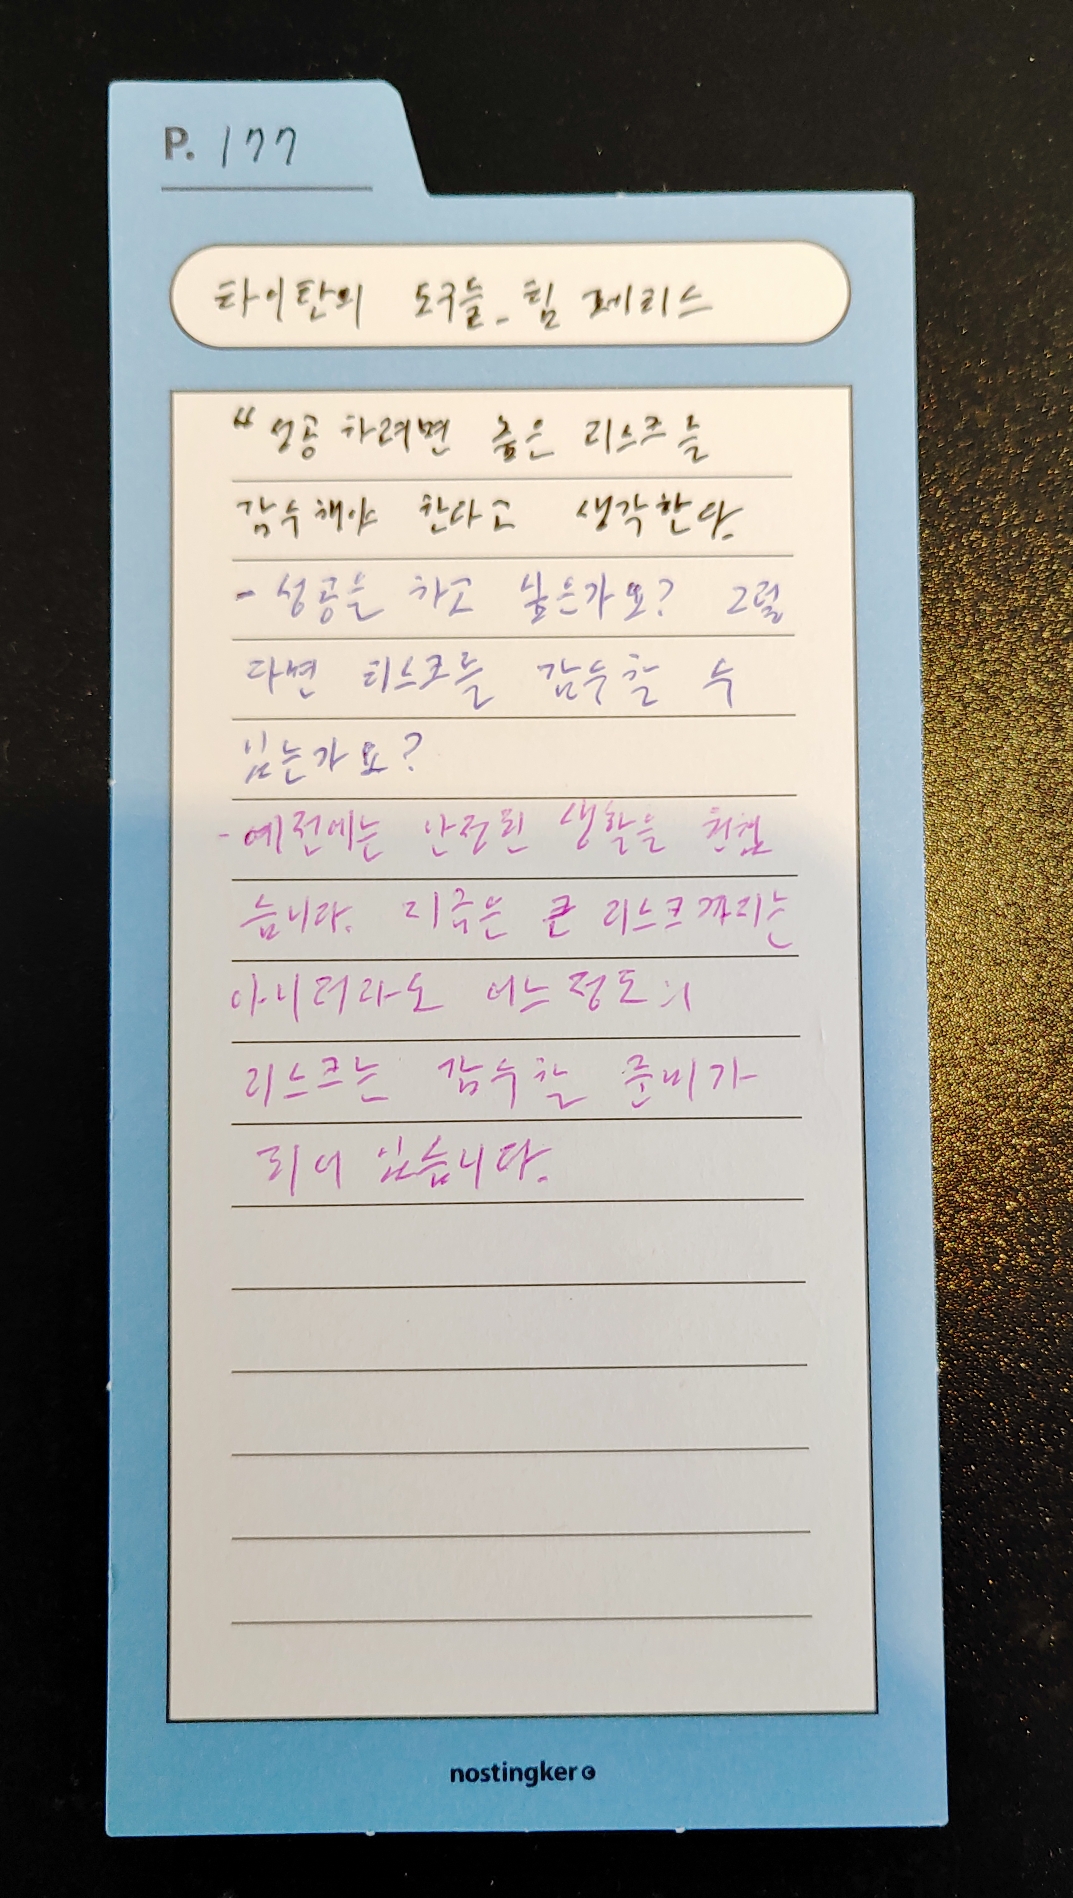 P. 177
타이탄의 도구들_팀 페리스
“성공하려면 높은 리스크를
감수해야 한다고 생각한다.
- 성공을 하고 싶은가요? 그렇
다면 리스크를 감수할 수
있는가요?
- 예전에는 안정된 생활을 원했
습니다. 지금은 큰 리스크까지는
아니더라도 어느정도의
리스크는 감수할 준비가
되어 있습니다.
nostingker